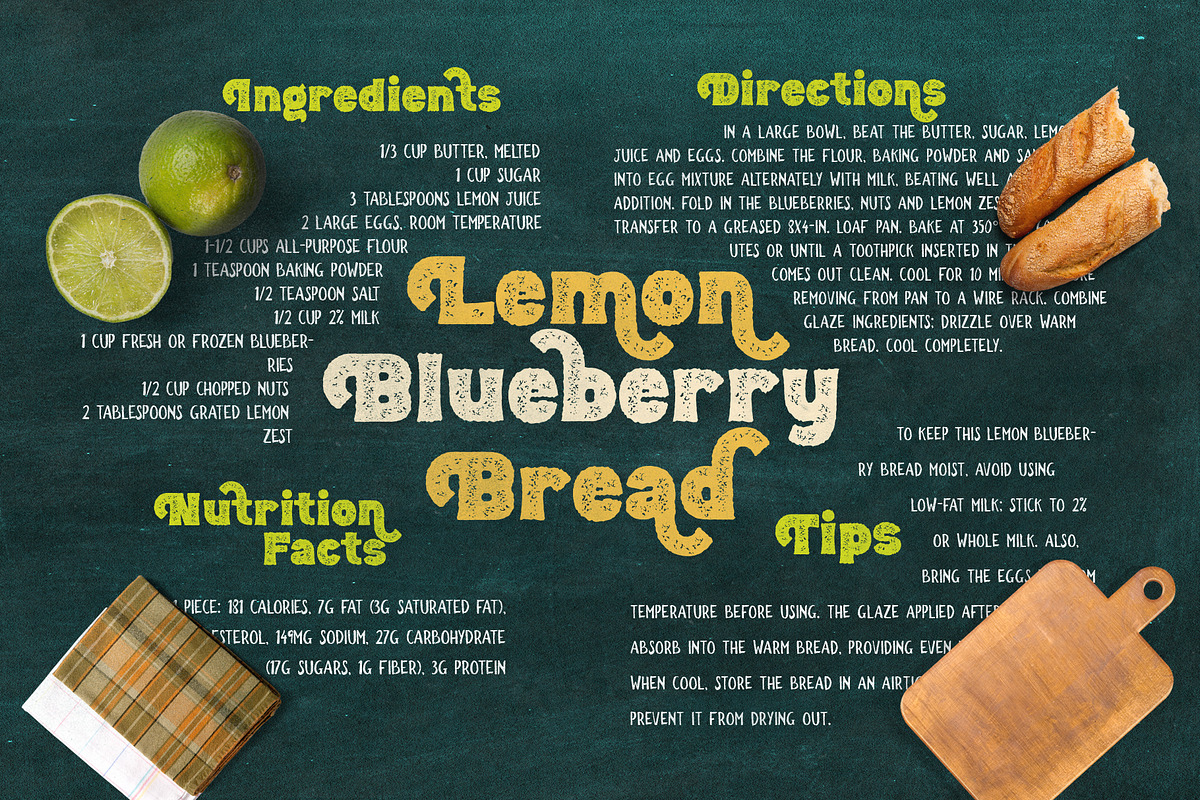 Ingredients
1/3 CUP BUTTER, MELTED
1 CUP SUGAR
3 TABLESPOONS LEMON JUICE
2 LARGE EGGS, ROOM TEMPERATURE
1-1/2 CUPS ALL-PURPOSE FLOUR
1 TEASPOON BAKING POWDER
1/2 TEASPOON SALT
1/2 CUP 2% MILK
1 CUP FRESH OR FROZEN BLUEBER-
RIES
1/2 CUP CHOPPED NUTS
2 TABLESPOONS GRATED LEMON
ZEST
Directions
IN A LARGE BOWL, BEAT THE BUTTER, SUGAR,
JUICE AND EGGS. COMBINE THE FLOUR, BAKING POWDER AND
INTO EGG MIXTURE ALTERNATELY WITH MILK, BEATING WELL
ADDITION. FOLD IN THE BLUEBERRIES, NUTS AND LEMON
TRANSFER TO A GREASED 8X4-IN. LOAF PAN. BAKE AT 350°
UTES OR UNTIL A TOOTHPICK INSERTED IN
COMES OUT CLEAN. COOL FOR 10
REMOVING FROM PAN TO A WIRE RACK. COMBINE
GLAZE INGREDIENTS; DRIZZLE OVER WARM
BREAD. COOL COMPLETELY.
Lemon
Blueberry
Bread
Nutrition
Facts
PIECE: 181 CALORIES, 7G FAT (3G SATURATED FAT),
149MG SODIUM, 27G CARBOHYDRATE
(17G SUGARS, 1G FIBER), 3G PROTEIN
Tips
TO KEEP THIS LEMON BLUEBER-
RY BREAD MOIST, AVOID USING
LOW-FAT MILK; STICK TO 2%
OR WHOLE MILK. ALSO,
BRING THE EGGS
TEMPERATURE BEFORE USING. THE GLAZE APPLIED
ABSORB INTO THE WARM BREAD, PROVIDING EVEN
WHEN COOL, STORE THE BREAD IN AN
PREVENT IT FROM DRYING OUT.